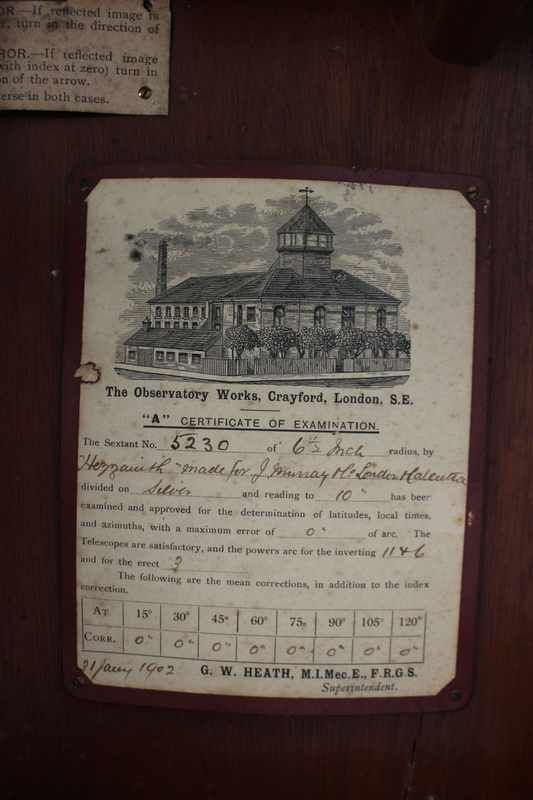 OR.—If reflected image is
r, turn in the direction of
ROR.—If reflected image
with index at zero) turn in
on of the arrow.
erse in both cases.
The Observatory Works, Crayford, London, S.E.
"A" CERTIFICATE OF EXAMINATION.
The Sextant No. 5230 of 6 1/2 Inch radius, by
"Hezzanith" made for J. Murray London & Calcutta
divided on Silver and reading to 10" has been
examined and approved for the determination of latitudes, local times,
and azimuths, with a maximum error of 0" of arc. The
Telescopes are satisfactory, and the powers are for the inverting 11 & 6
and for the erect 3
The following are the mean corrections, in addition to the index
correction.
AT 15° 30° 45° 60° 75° 90° 105° 120°
CORR. 0" 0" 0" 0" 0" 0" 0" 0"
21 Jany 1902 G. W. HEATH, M.I.Mec.E., F.R.G.S.
Superintendent.